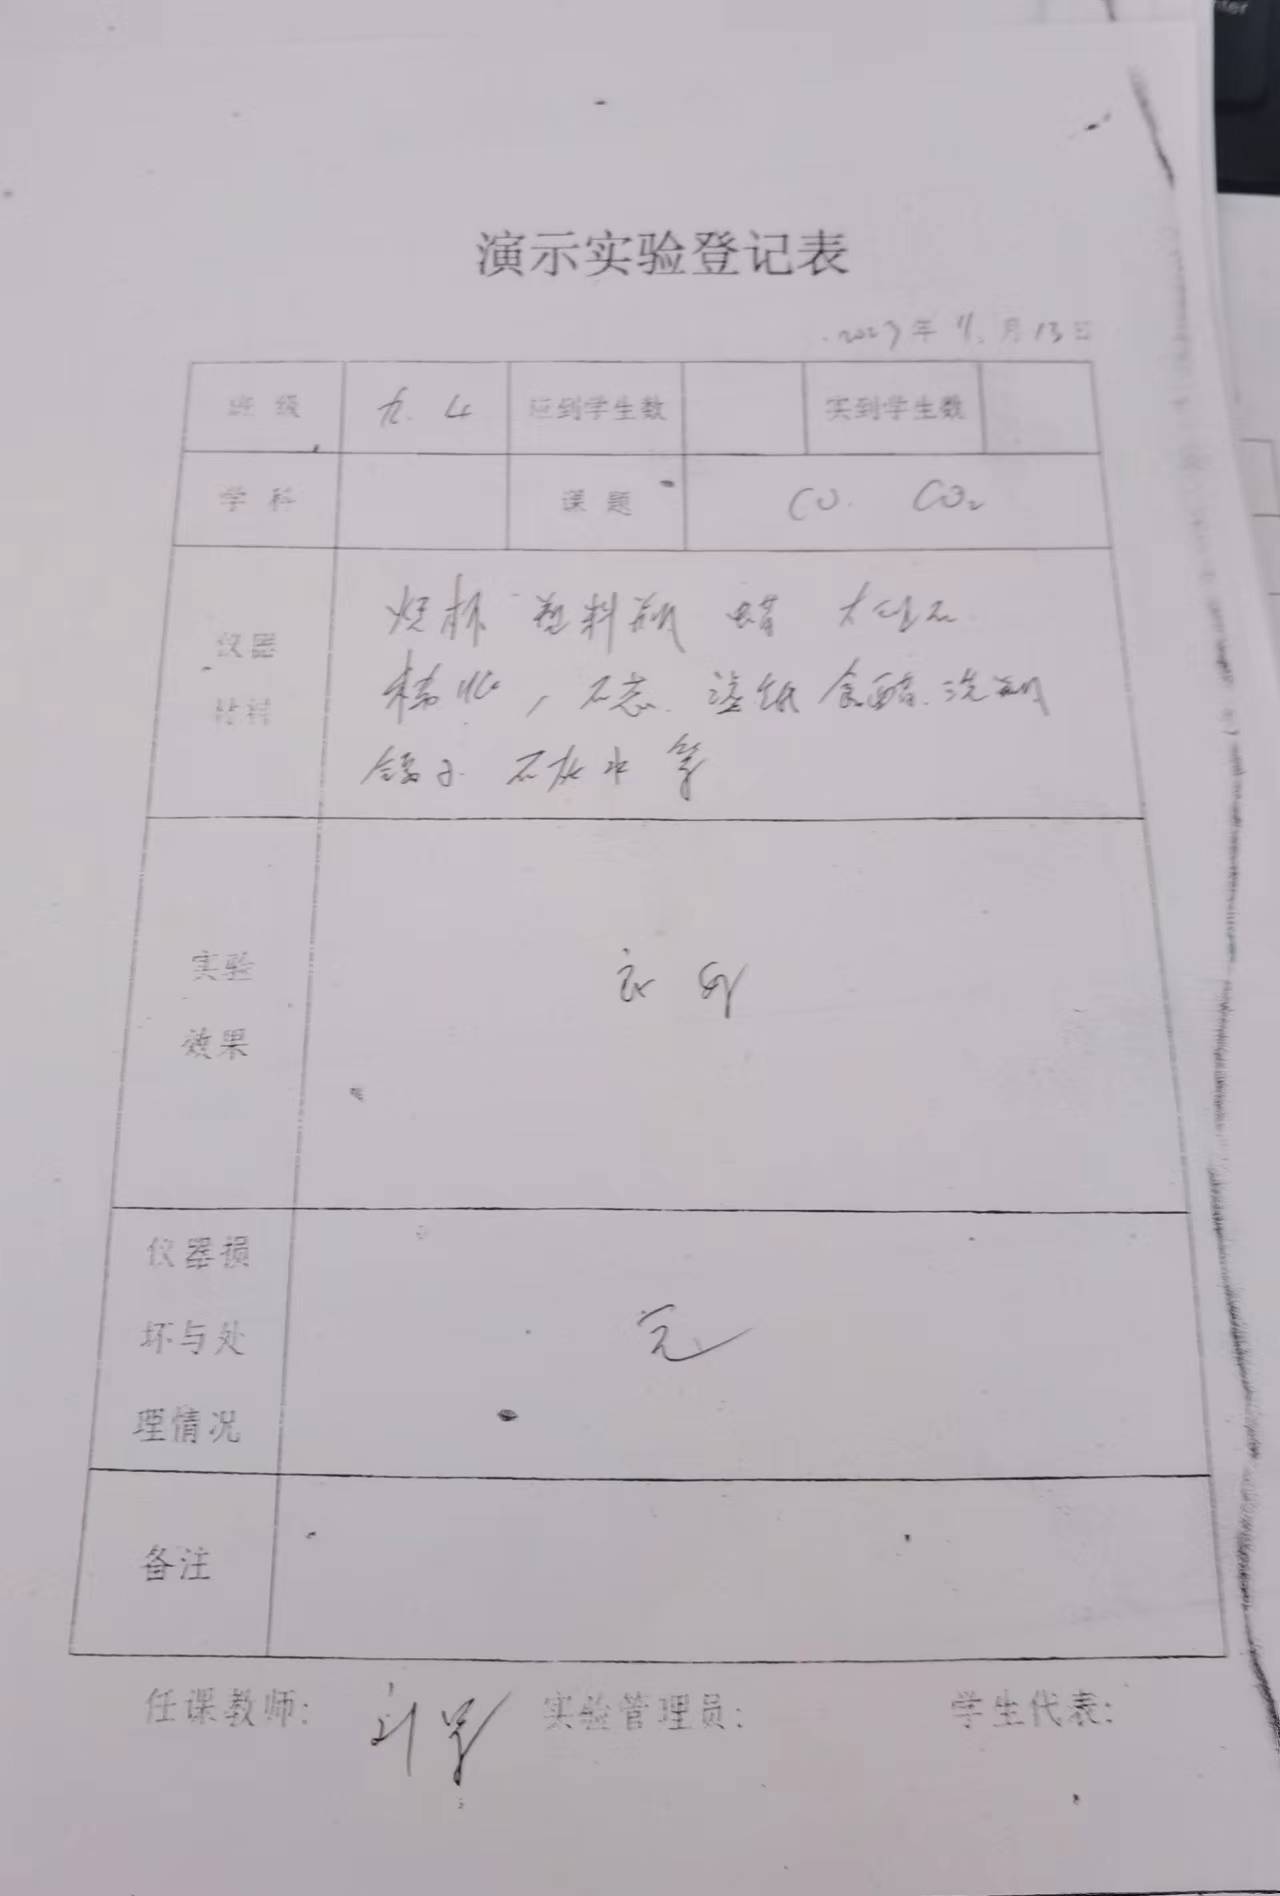 演示实验登记表
2023年11月13日
班级 九.4 应到学生数 实到学生数
学科 课题 CO. CO₂
仪器
材料
烧杯 塑料瓶 蜡 大理石
稀 , 石蕊. 滤纸 食醋. 洗瓶
镊子. 石灰水 等
实验
效果
良好
仪器损
坏与处
理情况
无
备注
任课教师: 实验管理员: 学生代表: